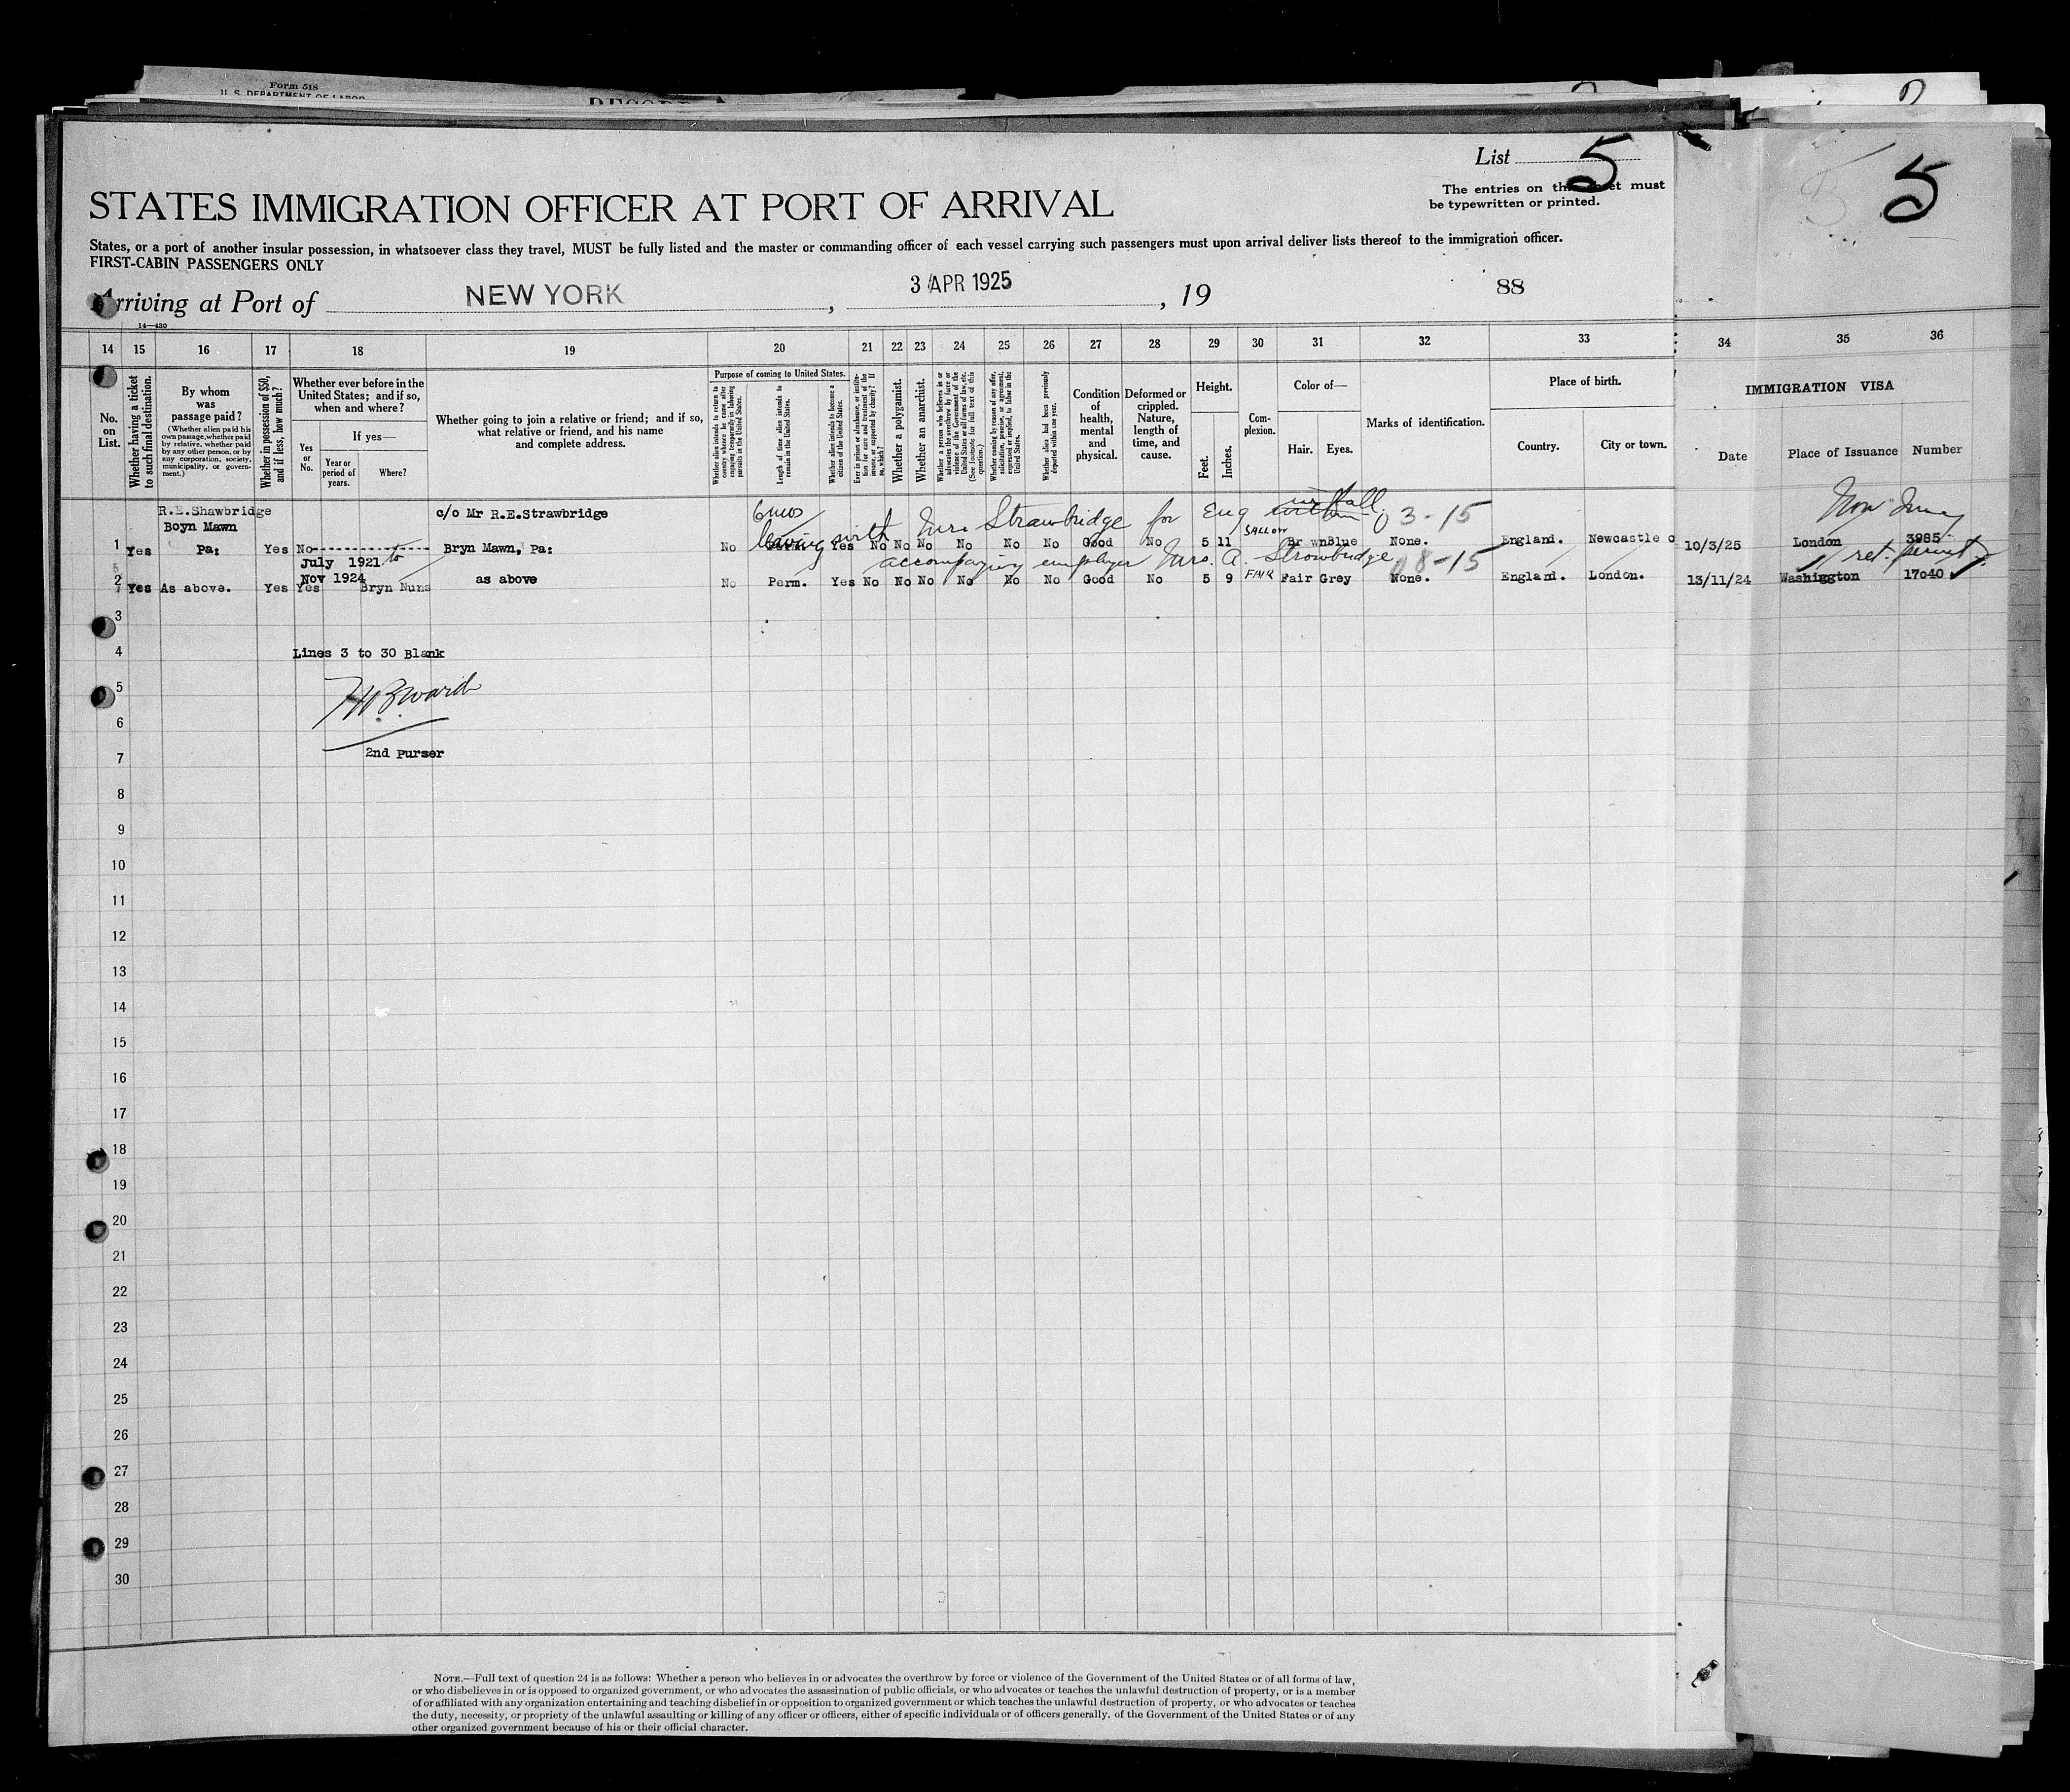 Form 518
U. S. DEPARTMENT OF LABOR
List 5
5
The entries on this sheet must
be typewritten or printed.
STATES IMMIGRATION OFFICER AT PORT OF ARRIVAL
States, or a port of another insular possession, in whatsoever class they travel, MUST be fully listed and the master or commanding officer of each vessel carrying such passengers must upon arrival deliver lists thereof to the immigration officer.
FIRST-CABIN PASSENGERS ONLY
Arriving at Port of NEW YORK, 3 APR 1925, 19
88
14—430
14 15 16 17 18 19 20 21 22 23 24 25 26 27 28 29 30 31 32 33 34 35 36
No. on List.
Whether having a ticket to such final destination.
By whom was passage paid?
(Whether alien paid his own passage, whether paid by relative, whether paid by any other person, or by any corporation, society, municipality, or government.)
Whether in possession of $50, and if less, how much?
Whether ever before in the United States; and if so, when and where?
Yes or No.
If yes—
Year or period of years.
Where?
Whether going to join a relative or friend; and if so, what relative or friend, and his name and complete address.
Purpose of coming to United States.
Whether alien intends to return to country whence he came after engaging temporarily in laboring pursuits in the United States.
Length of time alien intends to remain in the United States.
Whether alien intends to become a citizen of the United States.
Ever in prison or almshouse, or institution for care and treatment of the insane, or supported by charity? If so, which?
Whether a polygamist.
Whether an anarchist.
Whether a person who believes in or advocates the overthrow by force or violence of the Government of the United States or all forms of law, etc. (See footnote for full text of this question.)
Whether coming by reason of any offer, solicitation, promise, or agreement, expressed or implied, to labor in the United States.
Whether alien had been previously deported within one year.
Condition of health, mental and physical.
Deformed or crippled. Nature, length of time, and cause.
Height.
Feet.
Inches.
Complexion.
Color of—
Hair.
Eyes.
Marks of identification.
Place of birth.
Country.
City or town.
IMMIGRATION VISA
Date
Place of Issuance
Number
R.E.Shawbridge
Boyn Mawn
c/o Mr R.E.Strawbridge
6 mos
leaving with Mrs Strawbridge for Eng
03-15
1 Yes Pa: Yes No Bryn Mawn, Pa: No Yes No No No No No No Good No 5 11 SALLOW Br wn Blue None. England. Newcastle o 10/3/25 London 3985
July 1921 to
Nov 1924
accompaying employer Mrs. A. Strawbridge
08-15
ret. permit
2 Yes As above. Yes Yes Bryn Nuns as above No Perm. Yes No No No No No No Good No 5 9 FAIR Fair Grey None. England. London. 13/11/24 Washington 17040
3
4 Lines 3 to 30 Blank
5
6
7 2nd Purser
8
9
10
11
12
13
14
15
16
17
18
19
20
21
22
23
24
25
26
27
28
29
30
NOTE.—Full text of question 24 is as follows: Whether a person who believes in or advocates the overthrow by force or violence of the Government of the United States or of all forms of law,
or who disbelieves in or is opposed to organized government, or who advocates the assassination of public officials, or who advocates or teaches the unlawful destruction of property, or is a member
of or affiliated with any organization entertaining and teaching disbelief in or opposition to organized government or which teaches the unlawful destruction of property, or who advocates or teaches
the duty, necessity, or propriety of the unlawful assaulting or killing of any officer or officers, either of specific individuals or of officers generally, of the Government of the United States or of any
other organized government because of his or their official character.